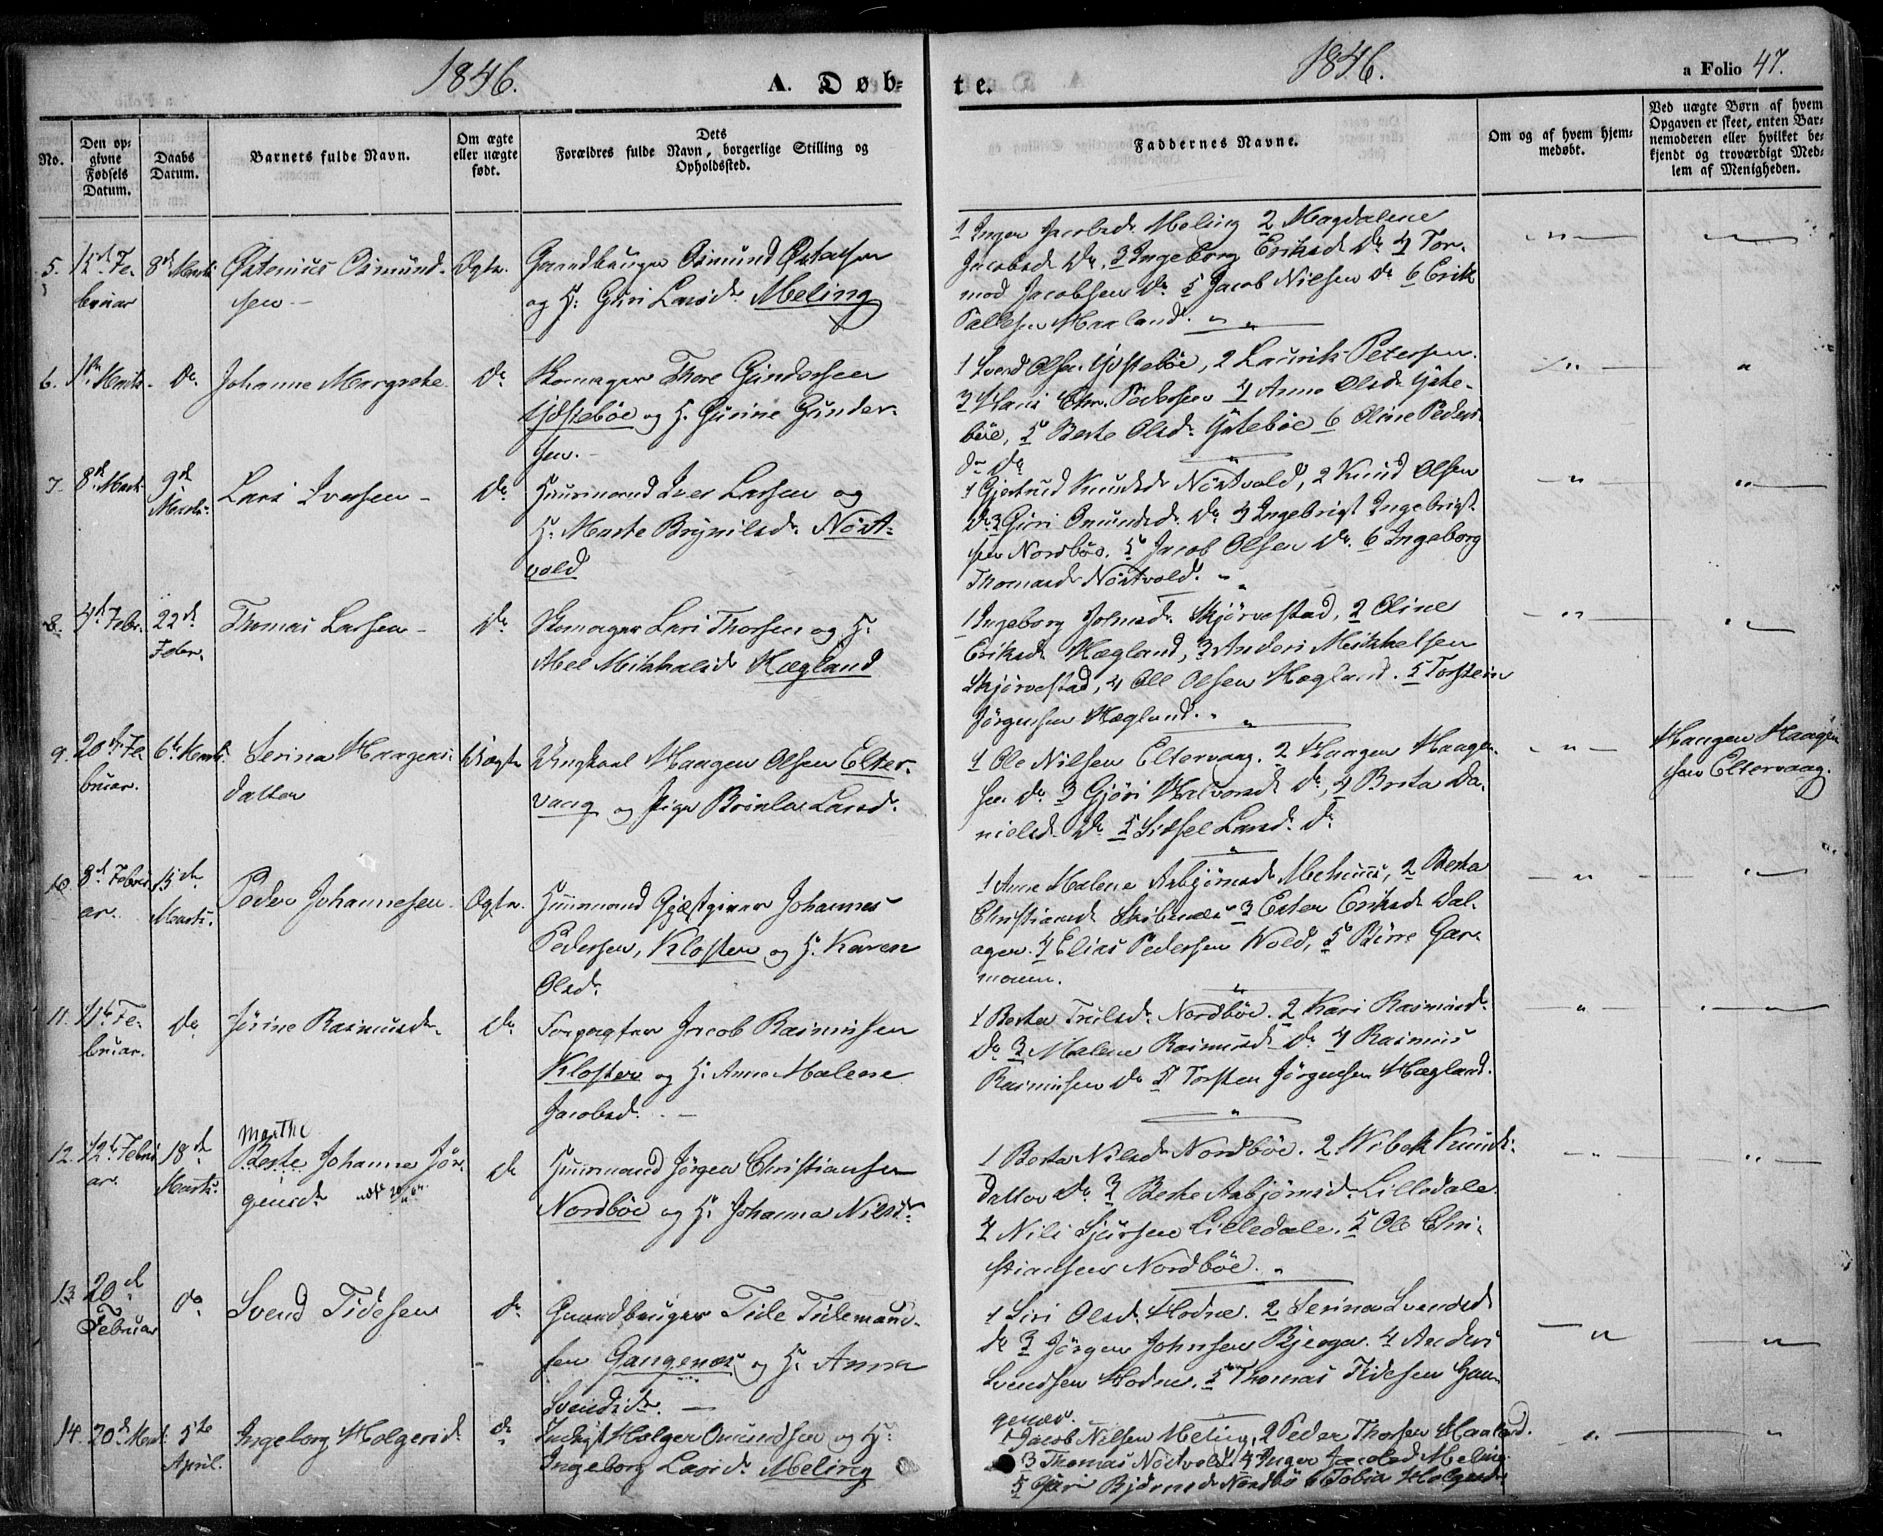 1846.
A. Døb-
te.
1846.
a Folio 47.
No.
Den op-
givne
Fødsels
Datum.
Daabs
Datum.
Barnets fulde Navn.
Om ægte
eller uægte
født.
Dets
Forældres fulde Navn, borgerlige Stilling og
Opholdssted.
Faddernes Navne.
Om og af hvem hjem-
medøbt.
Ved uægte Børn af hvem
Opgaven er skeet, enten Bar-
nemoderen eller hvilket be-
kjendt og troværdigt Med-
lem af Menigheden.
5. Fe-
bruar
8de Marts
Østenius Osmund-
sen
Ægte.
Gaardbruger Osmund Østensen
og H. Guri Larsd. Meling
1 Inger Jacobsd. Meling 2 Magdalene
Jacobsd. Do. 3 Ingeborg Eriksd. Do 4 Tor-
mod Jacobsen Do. 5 Jacob Nilsen Do 6 Erik
Pallesen Maaland.
6. 1ste Marts
Do.
Johanne Margrethe
Do
Skomager Thore Gundersen
Gjøstebøe og H. Gurine Gunder-
sen.
1 Svend Olsen Gjøstebøe, 2 Laurits Petersen
3 Hans Chr. Pedersen 4 Anne Olsd. Gjøste-
bøe, 5 Berte Olsd. Gjøtebøe 6 Oline Peders-
dr. Do
7. 8de Marts
9de
Marts.
Lars Iversen
Do.
Huusmand Iver Larsen og
H. Marte Brynilsd. Nøst-
vold
1 Gjertrud Knudsd. Nøstvold, 2 Knud Olsen
Do. 3 Guri Omundsd. Do 4 Ingebrigt Ingebrigt-
sen Nordbøe. 5 Jacob Olsen Do. 6 Ingeborg
Thomasd. Nøstvold.
8. 4de Febr.
22de
Febr.
Thomas Larsen
Do.
Skomager Lars Thorsen og H.
Abel Mikkelsd. Hægland
1 Ingeborg Johnsd. Skjørvestad, 2 Oline
Eriksd. Hægland, 3 Anders Mikkelsen
Skjørvestad, 4 Ole Olsen Hægland. 5 Torstein
Jørgensen Hægland.
9. 20de Fe-
bruar.
6te Marts.
Serina Haagens-
datter
Uægte
Ungkarl Haagen Olsen Elter-
vaag og Pige Larsd.
1 Ole Nilsen Eltervaag. 2 Haagen Haagen-
sen Do. 3 Gjøri Halvorsd. Do, 4 Brita Da-
nielsd. Do 5 Sidsel Larsd. Do
Haagen Haagen-
sen Eltervaag.
10. 8de Febru-
ar.
15de
Marts.
Peder Johannesen
Ægte.
Huusmand Gjæstgiver Johannes
Pedersen, Kloster og H. Karen
Olsd.
1 Anne Malene Asbjørnsd. 2 Berta
Christiansd. 3 Ester Eriksd. Dal-
ager. 4 Elias Pedersen Vold, 5 Børre Gar-
mann.
11. 11te Fe-
bruar.
Do
Jørine Rasmusd.
Do.
Forpagter Jacob Rasmussen
Kloster og H. Anne Malene
Jacobsd.
1 Berta Trulsd. Nordbøe. 2 Kari Rasmusd.
Do 3 Malene Rasmusd. Do. 4 Rasmus
Rasmussen Do 5 Torsten Jørgensen Hægland.
12. 12te Febru-
ar.
18de
Marts.
Marthe
Berte Johanne Jør-
gensd.
Do
Huusmand Jørgen Christiansen
Nordbøe og H. Johanna Nilsd.
1 Berta Nilsd. Nordbøe. 2 Wibeke Knuds-
datter Do. 3 Berte Asbjørnsd. Lilledale.
4 Nils Sjursen Lilledale. 5 Ole Chri-
stiansen Nordbøe.
13. 20de
Februar
Do
Svend Tidesen
Do.
Gaardbruger Tide Tidemand-
sen Gangenæs og H. Anna
Svendsd.
1 Siri Olsd. Hodne. 2 Serina Svendsd.
Do 3 Jørgen Johnsen Bjerga. 4 Anders
Svendsen Hodne. 5 Thomas Tidesen Gan-
genæs.
14. 20de Marts
5te
April.
Ingeborg Holgersd.
Do.
Holger Omundsen og H.
Ingeborg Larsd. Meling
1 Jacob Nilsen Meling, 2 Peder Thorsen Haaland.
3 Thomas Nøstvold 4 Inger Jacobsd. Meling
5 Guri Bjørnsd. Nordbø 6 Tobia Holgersd.